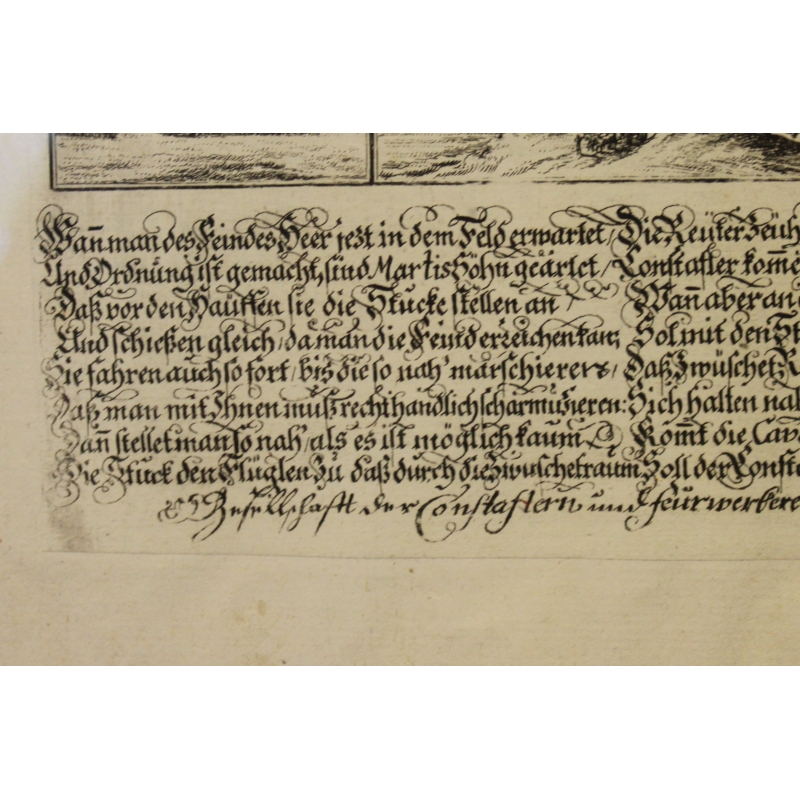 Wañ man des Feindes Heer jezt in dem Feld erwartet / Die Reüter
Und Ordnüng ist gemacht, sind Martis Söhn geärtet / Constafler kom̄e
Daß vor den Hauffen sie die Stucke stellen an Wañ aber an
Und schießen gleich / da man die Feind erzeichen kan; Sol mit den
Sie fahren auch so fort / bis die so nah' marschieren / Daß Zwüschet
Daß man mit Ihnen muß recht handlich scharmüsieren: Sich halten
Dañ stellet man so nah' als es ist möglich kaum Kom̄t die
Die Stuck den Flüglen Zu daß durch die Zwüschetraum Soll der
Gesellschafft der Constaflern und Feürwerkere